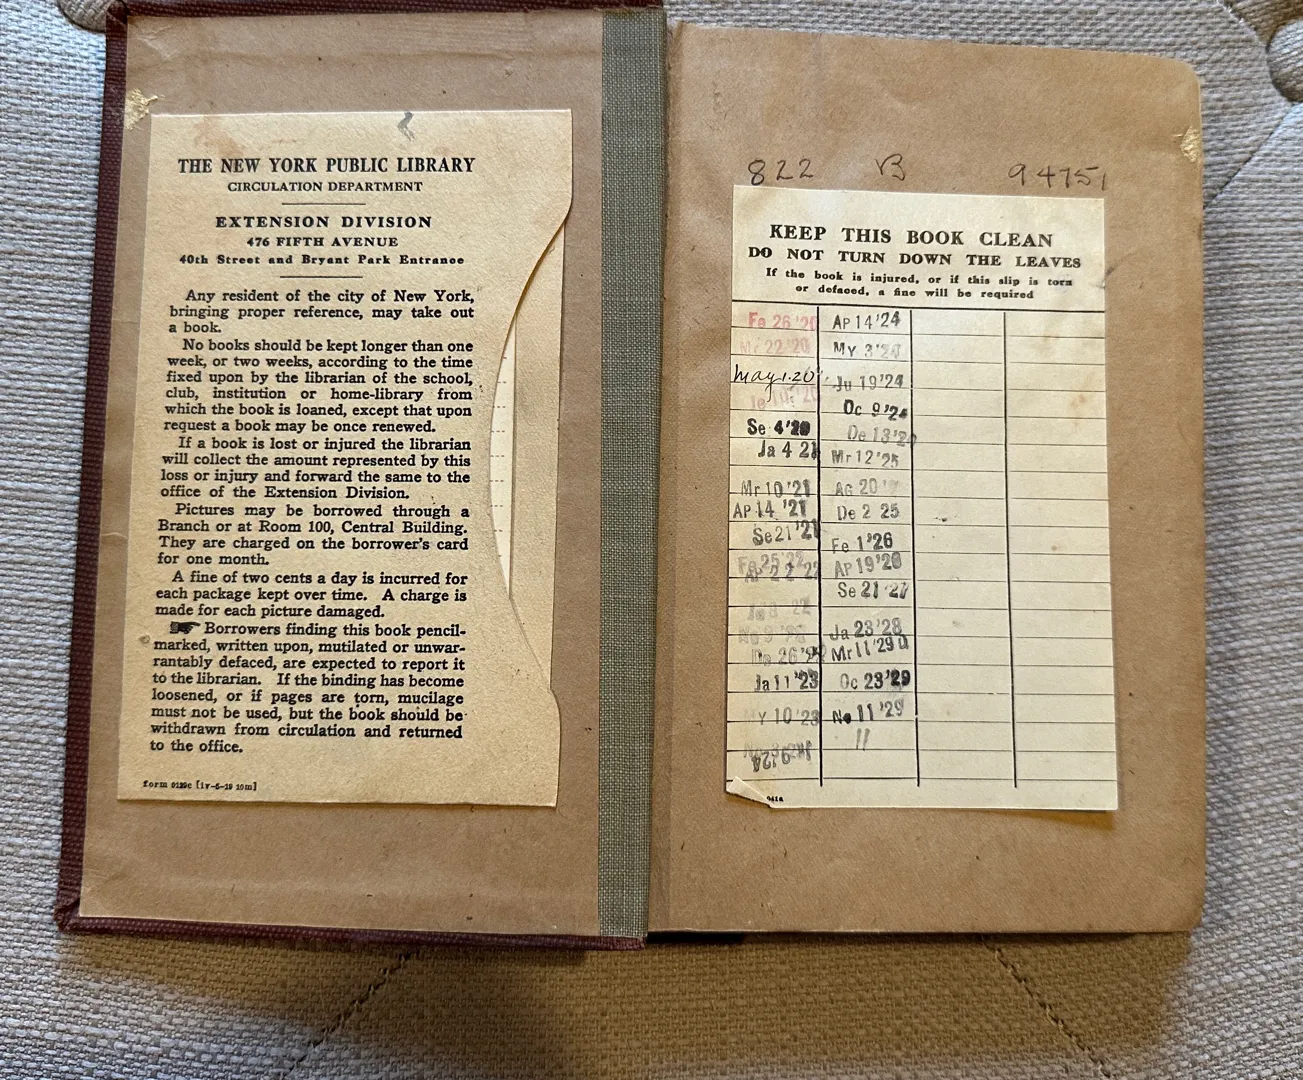 THE NEW YORK PUBLIC LIBRARY
CIRCULATION DEPARTMENT
EXTENSION DIVISION
476 FIFTH AVENUE
40th Street and Bryant Park Entrance
Any resident of the city of New York,
bringing proper reference, may take out
a book.
No books should be kept longer than one
week, or two weeks, according to the time
fixed upon by the librarian of the school,
club, institution or home-library from
which the book is loaned, except that upon
request a book may be once renewed.
If a book is lost or injured the librarian
will collect the amount represented by this
loss or injury and forward the same to the
office of the Extension Division.
Pictures may be borrowed through a
Branch or at Room 100, Central Building.
They are charged on the borrower's card
for one month.
A fine of two cents a day is incurred for
each package kept over time. A charge is
made for each picture damaged.
☛ Borrowers finding this book pencil-
marked, written upon, mutilated or unwar-
rantably defaced, are expected to report it
to the librarian. If the binding has become
loosened, or if pages are torn, mucilage
must not be used, but the book should be
withdrawn from circulation and returned
to the office.
form 0129c [iv-5-19 10m]
822 B 94751
KEEP THIS BOOK CLEAN
DO NOT TURN DOWN THE LEAVES
If the book is injured, or if this slip is torn
or defaced, a fine will be required
Fe 26 '20
May 1. 20
Se 4 '20
Ja 4 21
Mr 10 '21
AP 14 '21
Se 21 '21
Fe 25 '22
De 26 '22
Ja 11 '23
MY 10 '23
AP 14 '24
MY 3 '24
Ju 19 '24
Oc 9 '24
De 13 '24
Mr 12 '25
AG 20
De 2 25
Fe 1 '26
AP 19 '26
Se 21 '27
Ja 23 '28
Mr 11 '29
Oc 23 '29
No 11 '29
11